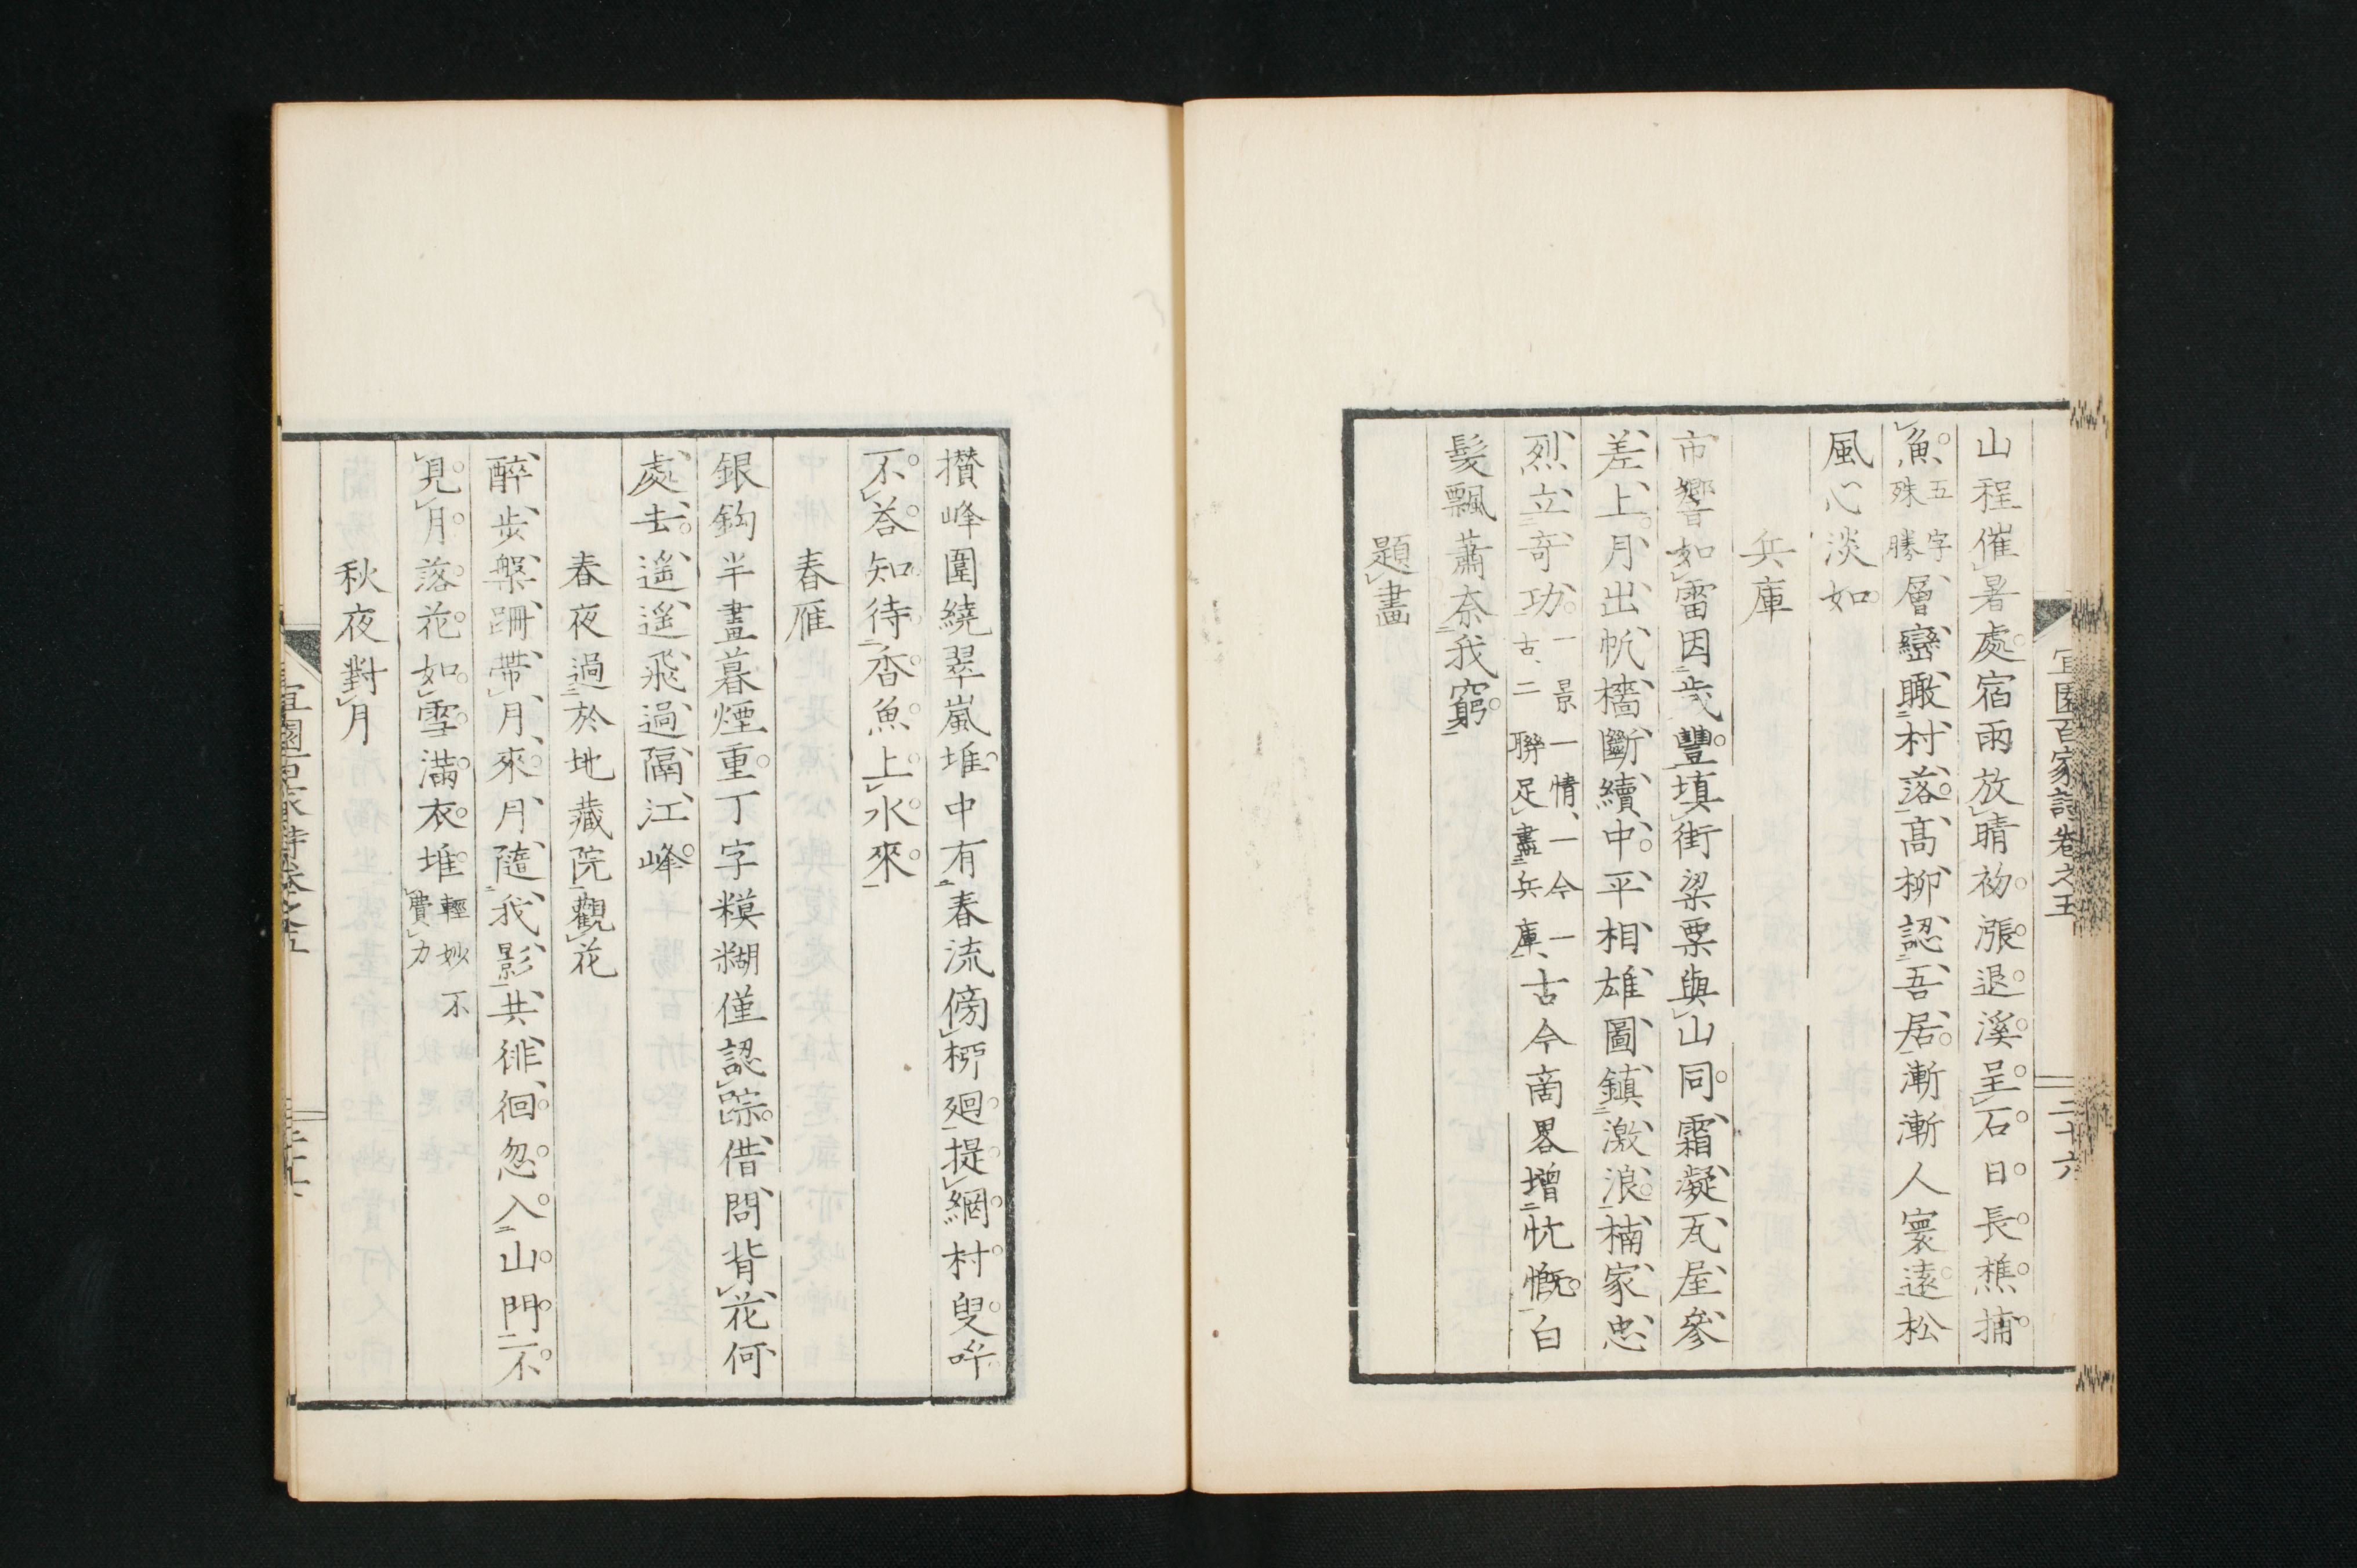 宜園百家詩卷之五
二十六
山程催暑處宿雨放晴初漲退溪呈石日長樵捕
魚五字殊勝層巒瞰村落高柳認吾居漸漸人寰遠松
風心淡如
兵庫
市響如雷因歲豐填街粱粟與山同霜凝瓦屋參
差上月出帆檣斷續中平相雄圖鎮激浪楠家忠
烈立奇功一景一情一今一古二聯足畫兵庫古今商畧增忼慨白
髮飄蕭奈我窮
題畫
攅峰圍繞翠嵐堆中有春流傍栁廻提網村叟呼
不答知待香魚上水來
春雁
銀鈎半畫暮煙重丁字糢糊僅認踪借問背花何
處去遙遙飛過隔江峰
春夜過於地藏院觀花
醉步槃跚帶月來月隨我影共徘徊忽入山門不
見月落花如雪滿衣堆輕妙不費力
秋夜對月
宜園百家詩卷之五